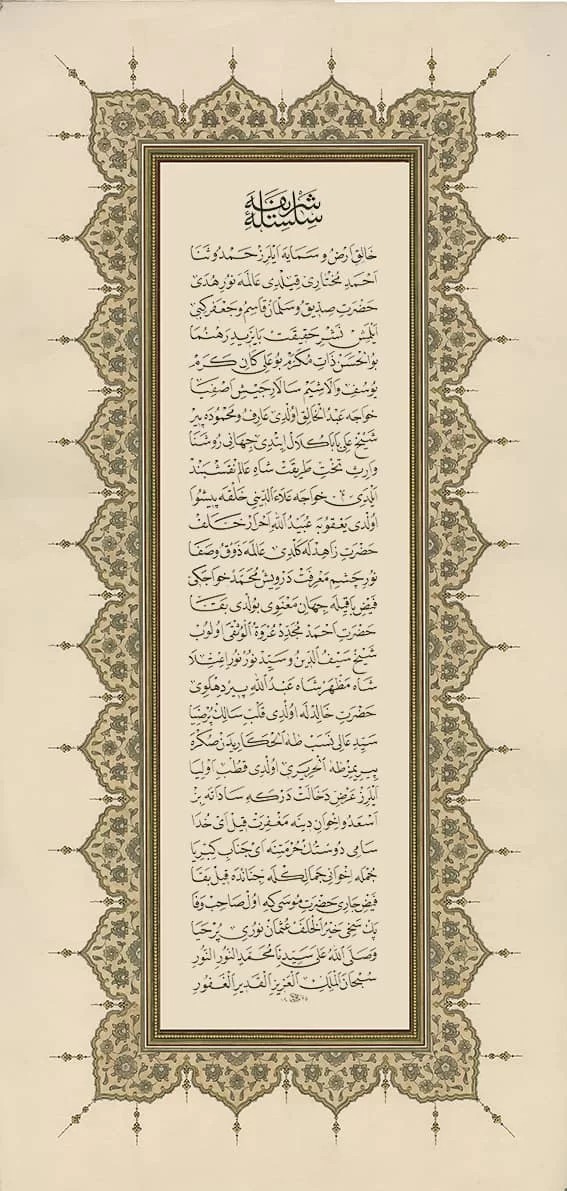 سلسلهٔ شریفه
خالق ارض و سمایه ایلرز حمد و ثنا
احمد مختاری قیلدی عالمه نور هدی
حضرت صدیق و سلمان قاسم و جعفر کبی
ایلمش نشر حقیقت بایزید رهنما
بوالحسن ذات مکرم بوعلی کان کرم
یوسف والاشیم سالار جیش اصفیا
خواجه عبدالخالق اولدی عارف و محموده پیر
شیخ علی بابا کلال ایتدی جهانی روشنا
وارث تخت طریقت شاه عالم نقشبند
ایلدی خواجه علاءالدینی خلقه پیشوا
اولدی یعقوبه عبیدالله احرار خلف
حضرت زاهدله کلدی عالمه ذوق و صفا
نور چشم معرفت درویش محمد خواجکی
فیض باقیله جهان معنوی بولدی بقا
حضرت احمد مجدد عروة الوثقی اولوب
شیخ سیف الدین و سید نور نور اعتلا
شاه مظهر شاه عبدالله پیر دهلوی
حضرت خالدله اولدی قلب سالک پرضیا
سید عالی نسب طه الحکاریدن صکره
پیریمز طه الحریری اولدی قطب اولیا
ایلرز عرض دخالت درکه ساداته بز
اسعد و اخوان دینه مغفرت قیل ای خدا
سامی دوستك حرمتنه ای جناب کبریا
جمله اخوانی جمالكله جنانده قیل بقا
فیض جاری حضرت موسی که اول صاحب وفا
پك سخی خیر الخلف عثمان نوری پرحیا
وصلی الله علی سیدنا محمد النور النور
سبحان الملك العزیز القدیر الغفور